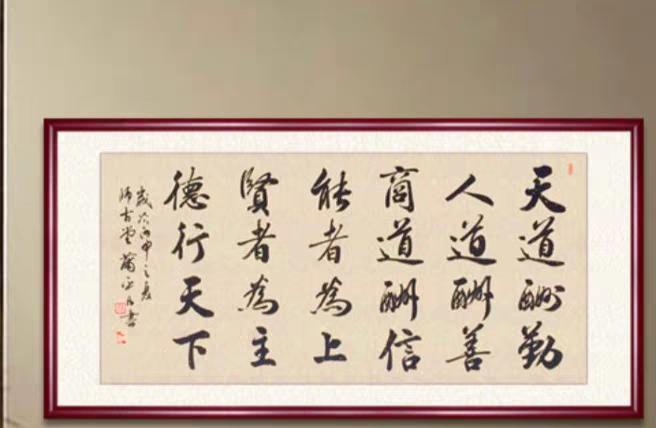 天道酬勤
人道酬善
商道酬信
能者為上
賢者為主
德行天下
歲次丙申之夏
師古堂